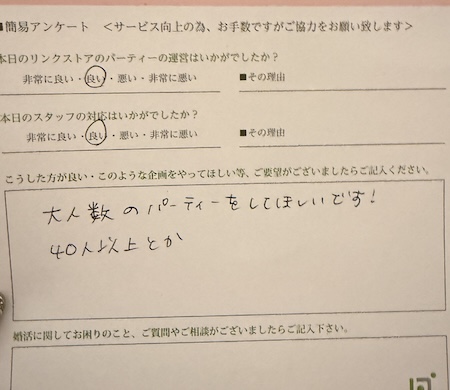 ■簡易アンケート ＜サービス向上の為、お手数ですがご協力をお願い致します＞
本日のリンクストアのパーティーの運営はいかがでしたか？
非常に良い・良い・悪い・非常に悪い ■その理由
本日のスタッフの対応はいかがでしたか？
非常に良い・良い・悪い・非常に悪い ■その理由
こうした方が良い・このような企画をやってほしい等、ご要望がございましたらご記入ください。
大人数のパーティーをしてほしいです！
40人以上とか
婚活に関してお困りのこと、ご質問やご相談がございましたらご記入下さい。